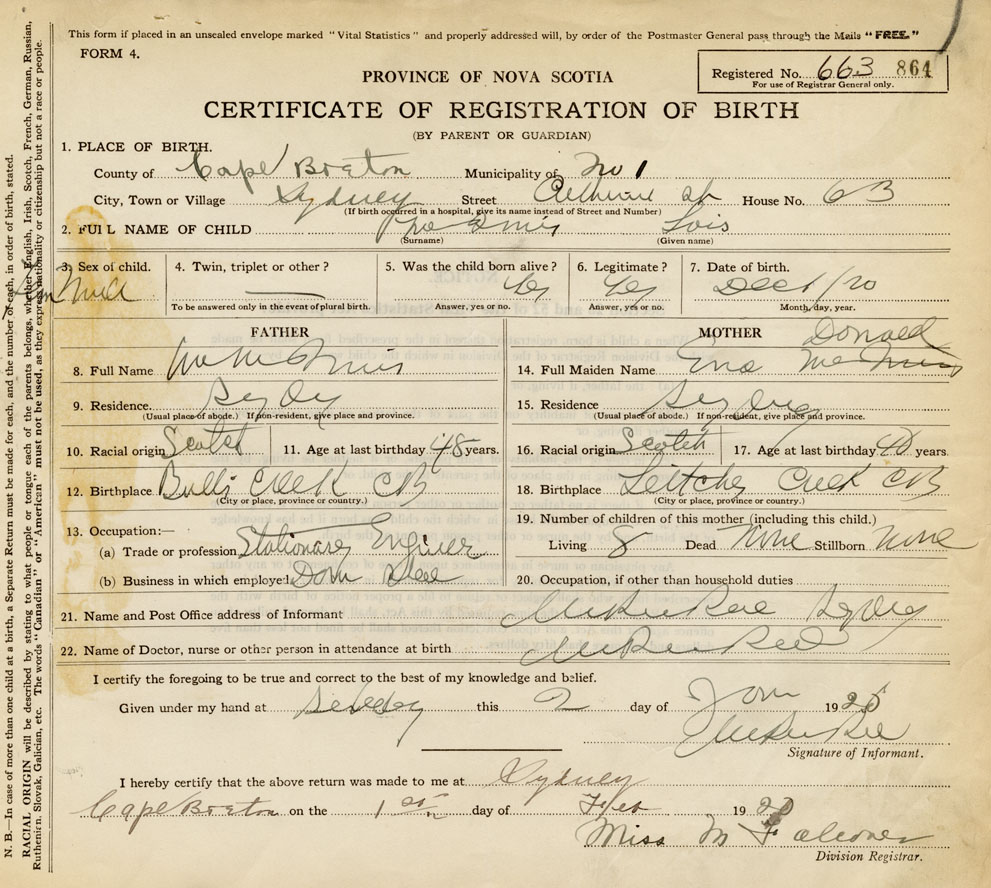 This form if placed in an unsealed envelope marked "Vital Statistics" and properly addressed will, by order of the Postmaster General pass through the Mails "FREE."
FORM 4.
Registered No. 663 864
For use of Registrar General only.
PROVINCE OF NOVA SCOTIA
CERTIFICATE OF REGISTRATION OF BIRTH
(BY PARENT OR GUARDIAN)
1. PLACE OF BIRTH.
County of Cape Breton Municipality of No 1
City, Town or Village Sydney Street House No. 63
(If birth occurred in a hospital, give its name instead of Street and Number)
2. FULL NAME OF CHILD Lois
(Surname) (Given name)
3. Sex of child. 4. Twin, triplet or other? 5. Was the child born alive? 6. Legitimate? 7. Date of birth.
To be answered only in the event of plural birth. Answer, yes or no. Answer, yes or no. Month, day, year.
FATHER MOTHER Donald
8. Full Name 14. Full Maiden Name Ena
9. Residence. 15. Residence
(Usual place of abode.) If non-resident, give place and province. (Usual place of abode.) If non-resident, give place and province.
10. Racial origin Scotch 11. Age at last birthday 48 years. 16. Racial origin Scotch 17. Age at last birthday 40 years.
12. Birthplace Creek CB 18. Birthplace Leitches Creek CB
(City or place, province or country.) (City or place, province or country.)
13. Occupation:— 19. Number of children of this mother (including this child.)
(a) Trade or profession Stationary Engineer Living 8 Dead None Stillborn None
(b) Business in which employed Dom Steel 20. Occupation, if other than household duties
21. Name and Post Office address of Informant Sydney
22. Name of Doctor, nurse or other person in attendance at birth
I certify the foregoing to be true and correct to the best of my knowledge and belief.
Given under my hand at Sydney this 2 day of Jan 19
Signature of Informant.
I hereby certify that the above return was made to me at Sydney
Cape Breton on the 1st day of Feb 19
Miss M Falconer
Division Registrar.
N. B.—In case of more than one child at a birth, a Separate Return must be made for each, and the number of each, in order of birth, stated.
RACIAL ORIGIN will be described by stating to what people or tongue each of the parents belongs, whether English, Irish, Scotch, French, German, Russian,
Ruthenien. Slovak, Galician, etc. The words "Canadian" or "American" must not be used, as they express nationality or citizenship but not a race or people.